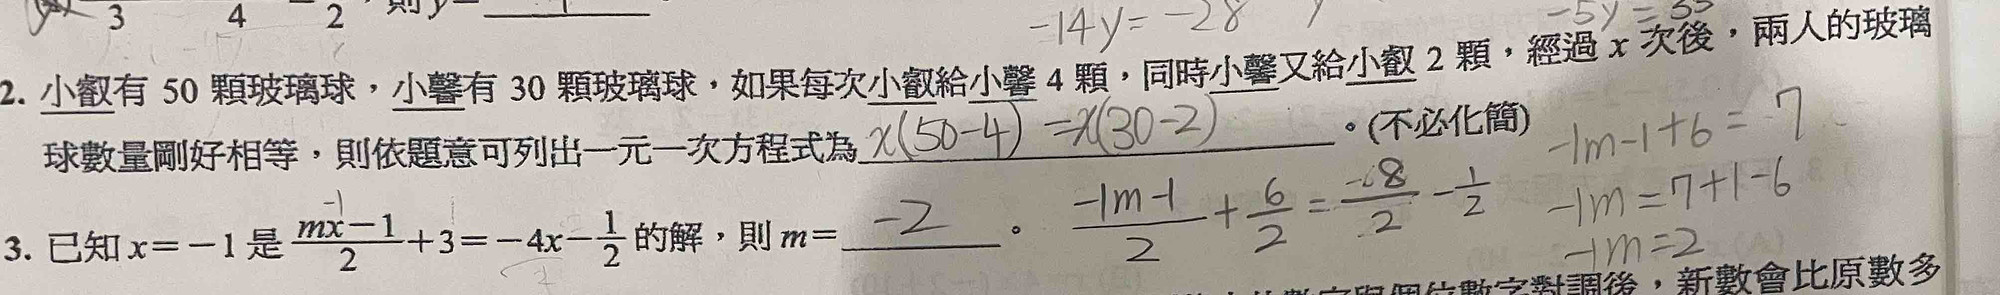 3 4 2 ，則y=
-14y=-28
-5y=35
2. 小叡有 50 顆玻璃球，小馨有 30 顆玻璃球，如果每次小叡給小馨 4 顆，同時小馨又給小叡 2 顆，經過 x 次後，兩人的玻璃
球數量剛好相等，則依題意可列出一元一次方程式為 x(50-4)=x(30-2) 。(不必化簡)
-1m-1+6=7
3. 已知 x=-1 是 (mx-1)/2+3=-4x-1/2 的解，則 m= -2 。
-1
(-1m-1)/2+6/2=8/2-1/2
-1m=7+1-6
-1m=2
數字與個位數字對調後，新數會比原數多